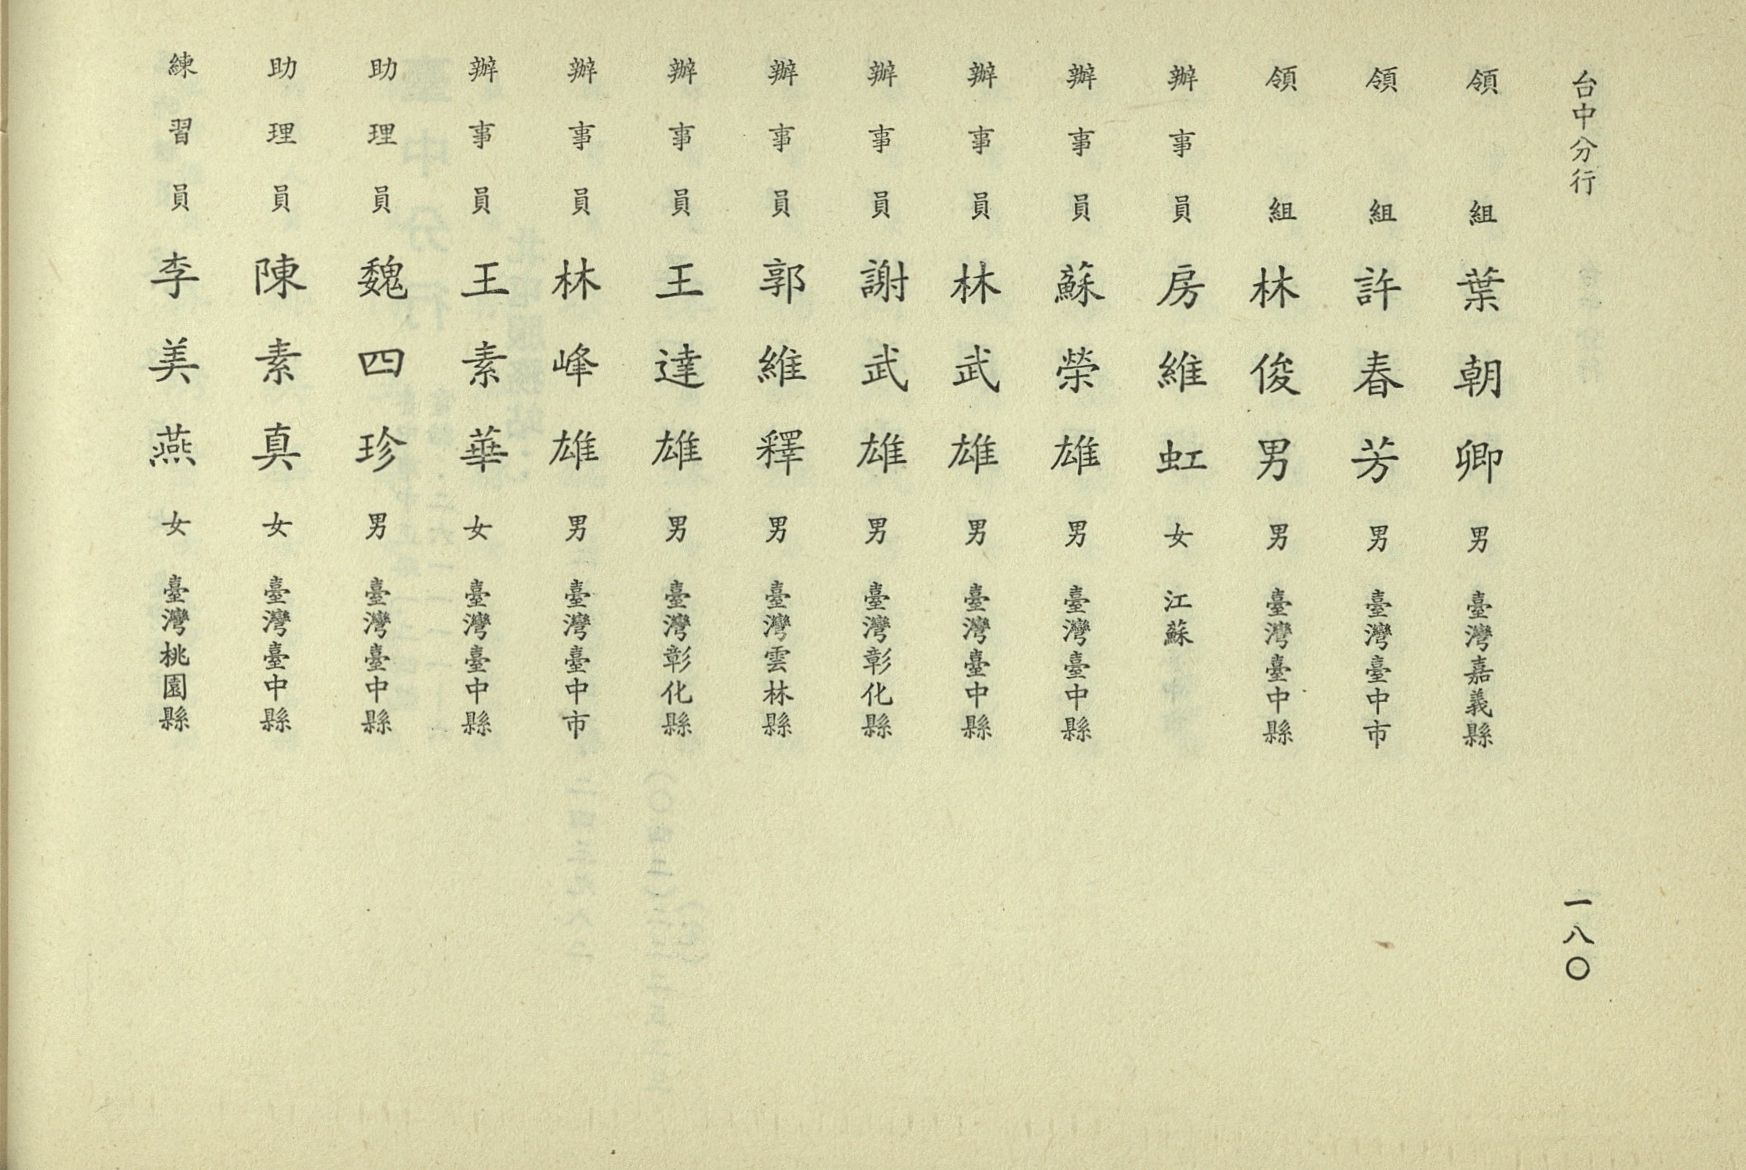 台中分行
一八〇
領組 葉朝卿 男 臺灣嘉義縣
領組 許春芳 男 臺灣臺中市
領組 林俊男 男 臺灣臺中縣
辦事員 房維虹 女 江蘇
辦事員 蘇榮雄 男 臺灣臺中縣
辦事員 林武雄 男 臺灣臺中縣
辦事員 謝武雄 男 臺灣彰化縣
辦事員 郭維釋 男 臺灣雲林縣
辦事員 王達雄 男 臺灣彰化縣
辦事員 林峰雄 男 臺灣臺中市
辦事員 王素華 女 臺灣臺中縣
助理員 魏四珍 男 臺灣臺中縣
助理員 陳素真 女 臺灣臺中縣
練習員 李美燕 女 臺灣桃園縣